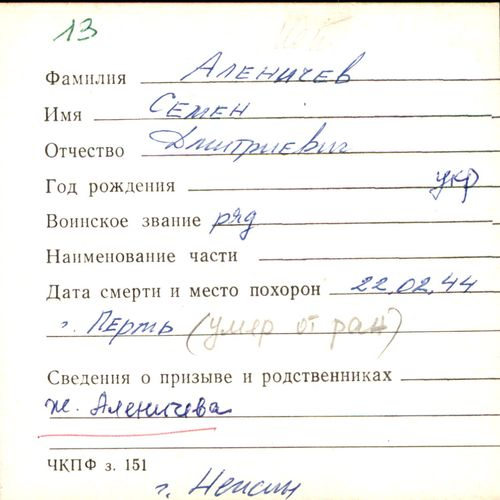 13
Фамилия Аленичев
Имя Семен
Отчество Дмитриевич
Год рождения укр
Воинское звание ряд
Наименование части
Дата смерти и место похорон 22.02.44
г. Пермь (умер от ран)
Сведения о призыве и родственниках
ж. Аленичева
ЧКПФ з. 151
г.